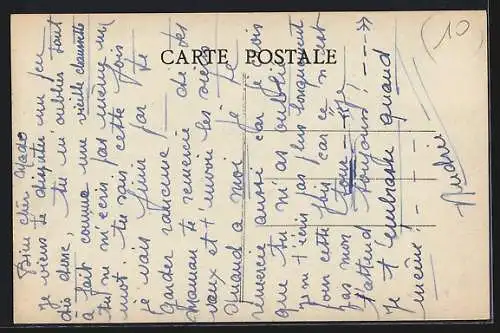 CARTE POSTALE
10
Bien chère Mado
Je viens te disputer un peu
dis donc, tu m'oublies tout
à fait comme une vieille chaussette
tu ne m'écris pas même un
mot. tu sais cette fois
je vais finir par te
garder rancune! —
Maman te remercie des
vœux et t'envoie les siens
Quand a moi je te
remercie aussi car je vois
que tu m'as oubliée
je ne t'écris pas plus longuement
pour cette fois car ce n'est
pas mon tour — Je
t'attend toujours! - - - »
Je t'embrasse quand
même! - - - -
Andrée